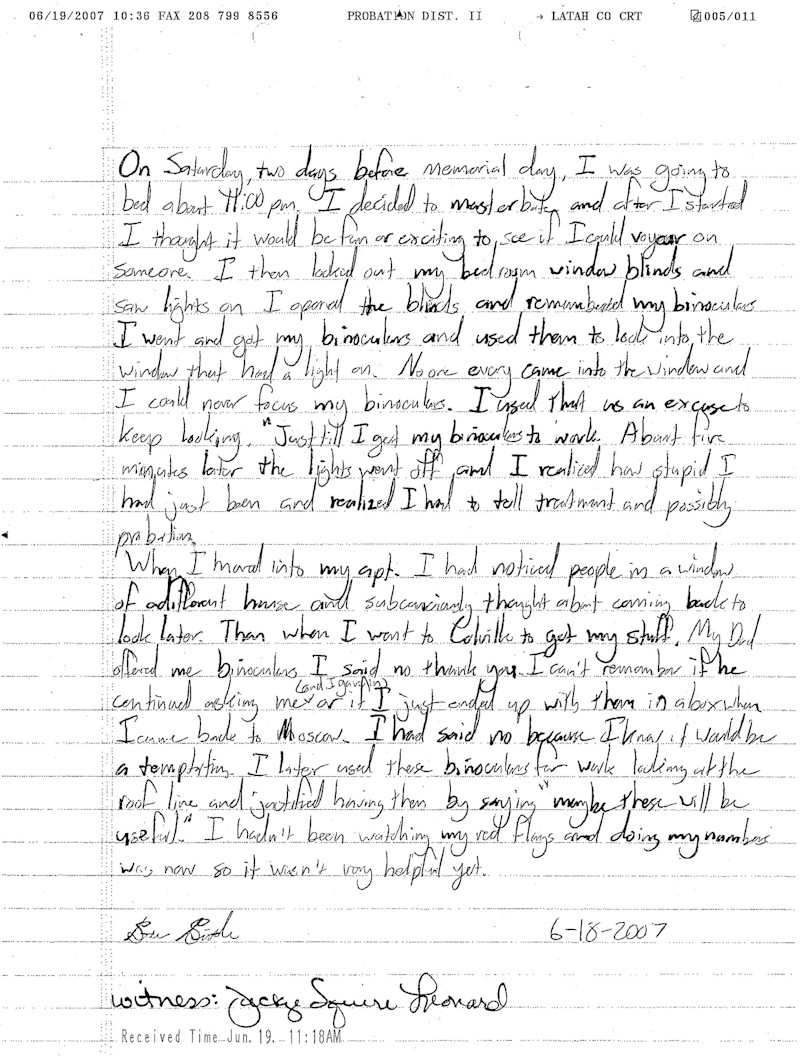 06/19/2007 10:36 FAX 208 799 8556 PROBATION DIST. II → LATAH CO CRT 005/011
On Saturday, two days before memorial day, I was going to
bed about 11:00 pm. I decided to masterbate and after I started
I thought it would be fun or exciting to see if I could voyeur on
someone. I then looked out my bedroom window blinds and
saw lights on I opened the blinds and remembered my binoculars
I went and got my binoculars and used them to look into the
window that had a light on. No one every came into the window and
I could never focus my binoculars. I used that as an excuse to
keep looking. "Just till I get my binoculars to work." About five
minutes later the lights went off and I realized how stupid I
had just been and realized I had to tell treatment and possibly
probation.
When I moved into my apt. I had noticed people in a window
of a different house and subconciously thought about coming back to
look later. Then when I went to Colville to get my stuff. My Dad
offered me binoculars I said no thank you. I can't remember if he
continued asking me (and I gave in) or if I just ended up with them in a box when
I came back to Moscow. I had said no because I knew it would be
a temptation. I later used these binoculars for work looking at the
roof line and justified having them by saying "maybe these will be
useful." I hadn't been watching my red flags and doing my numbers
was new so it wasn't very helpful yet.
6-18-2007
witness: Jackie Squire Leonard
Received Time Jun. 19. 11:18AM